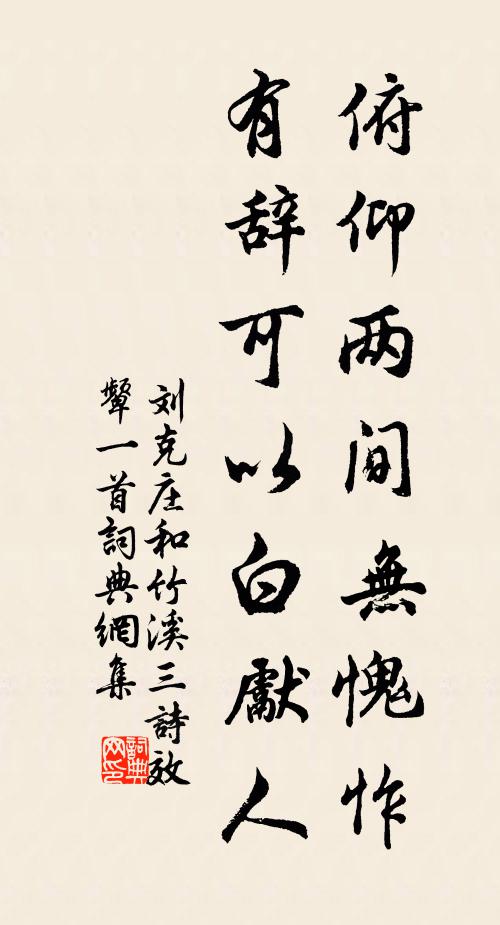 俯仰两间無愧怍
有辞可以白獻人
刘克庄和竹溪三詩效
顰一首詞典網集
詞典网印